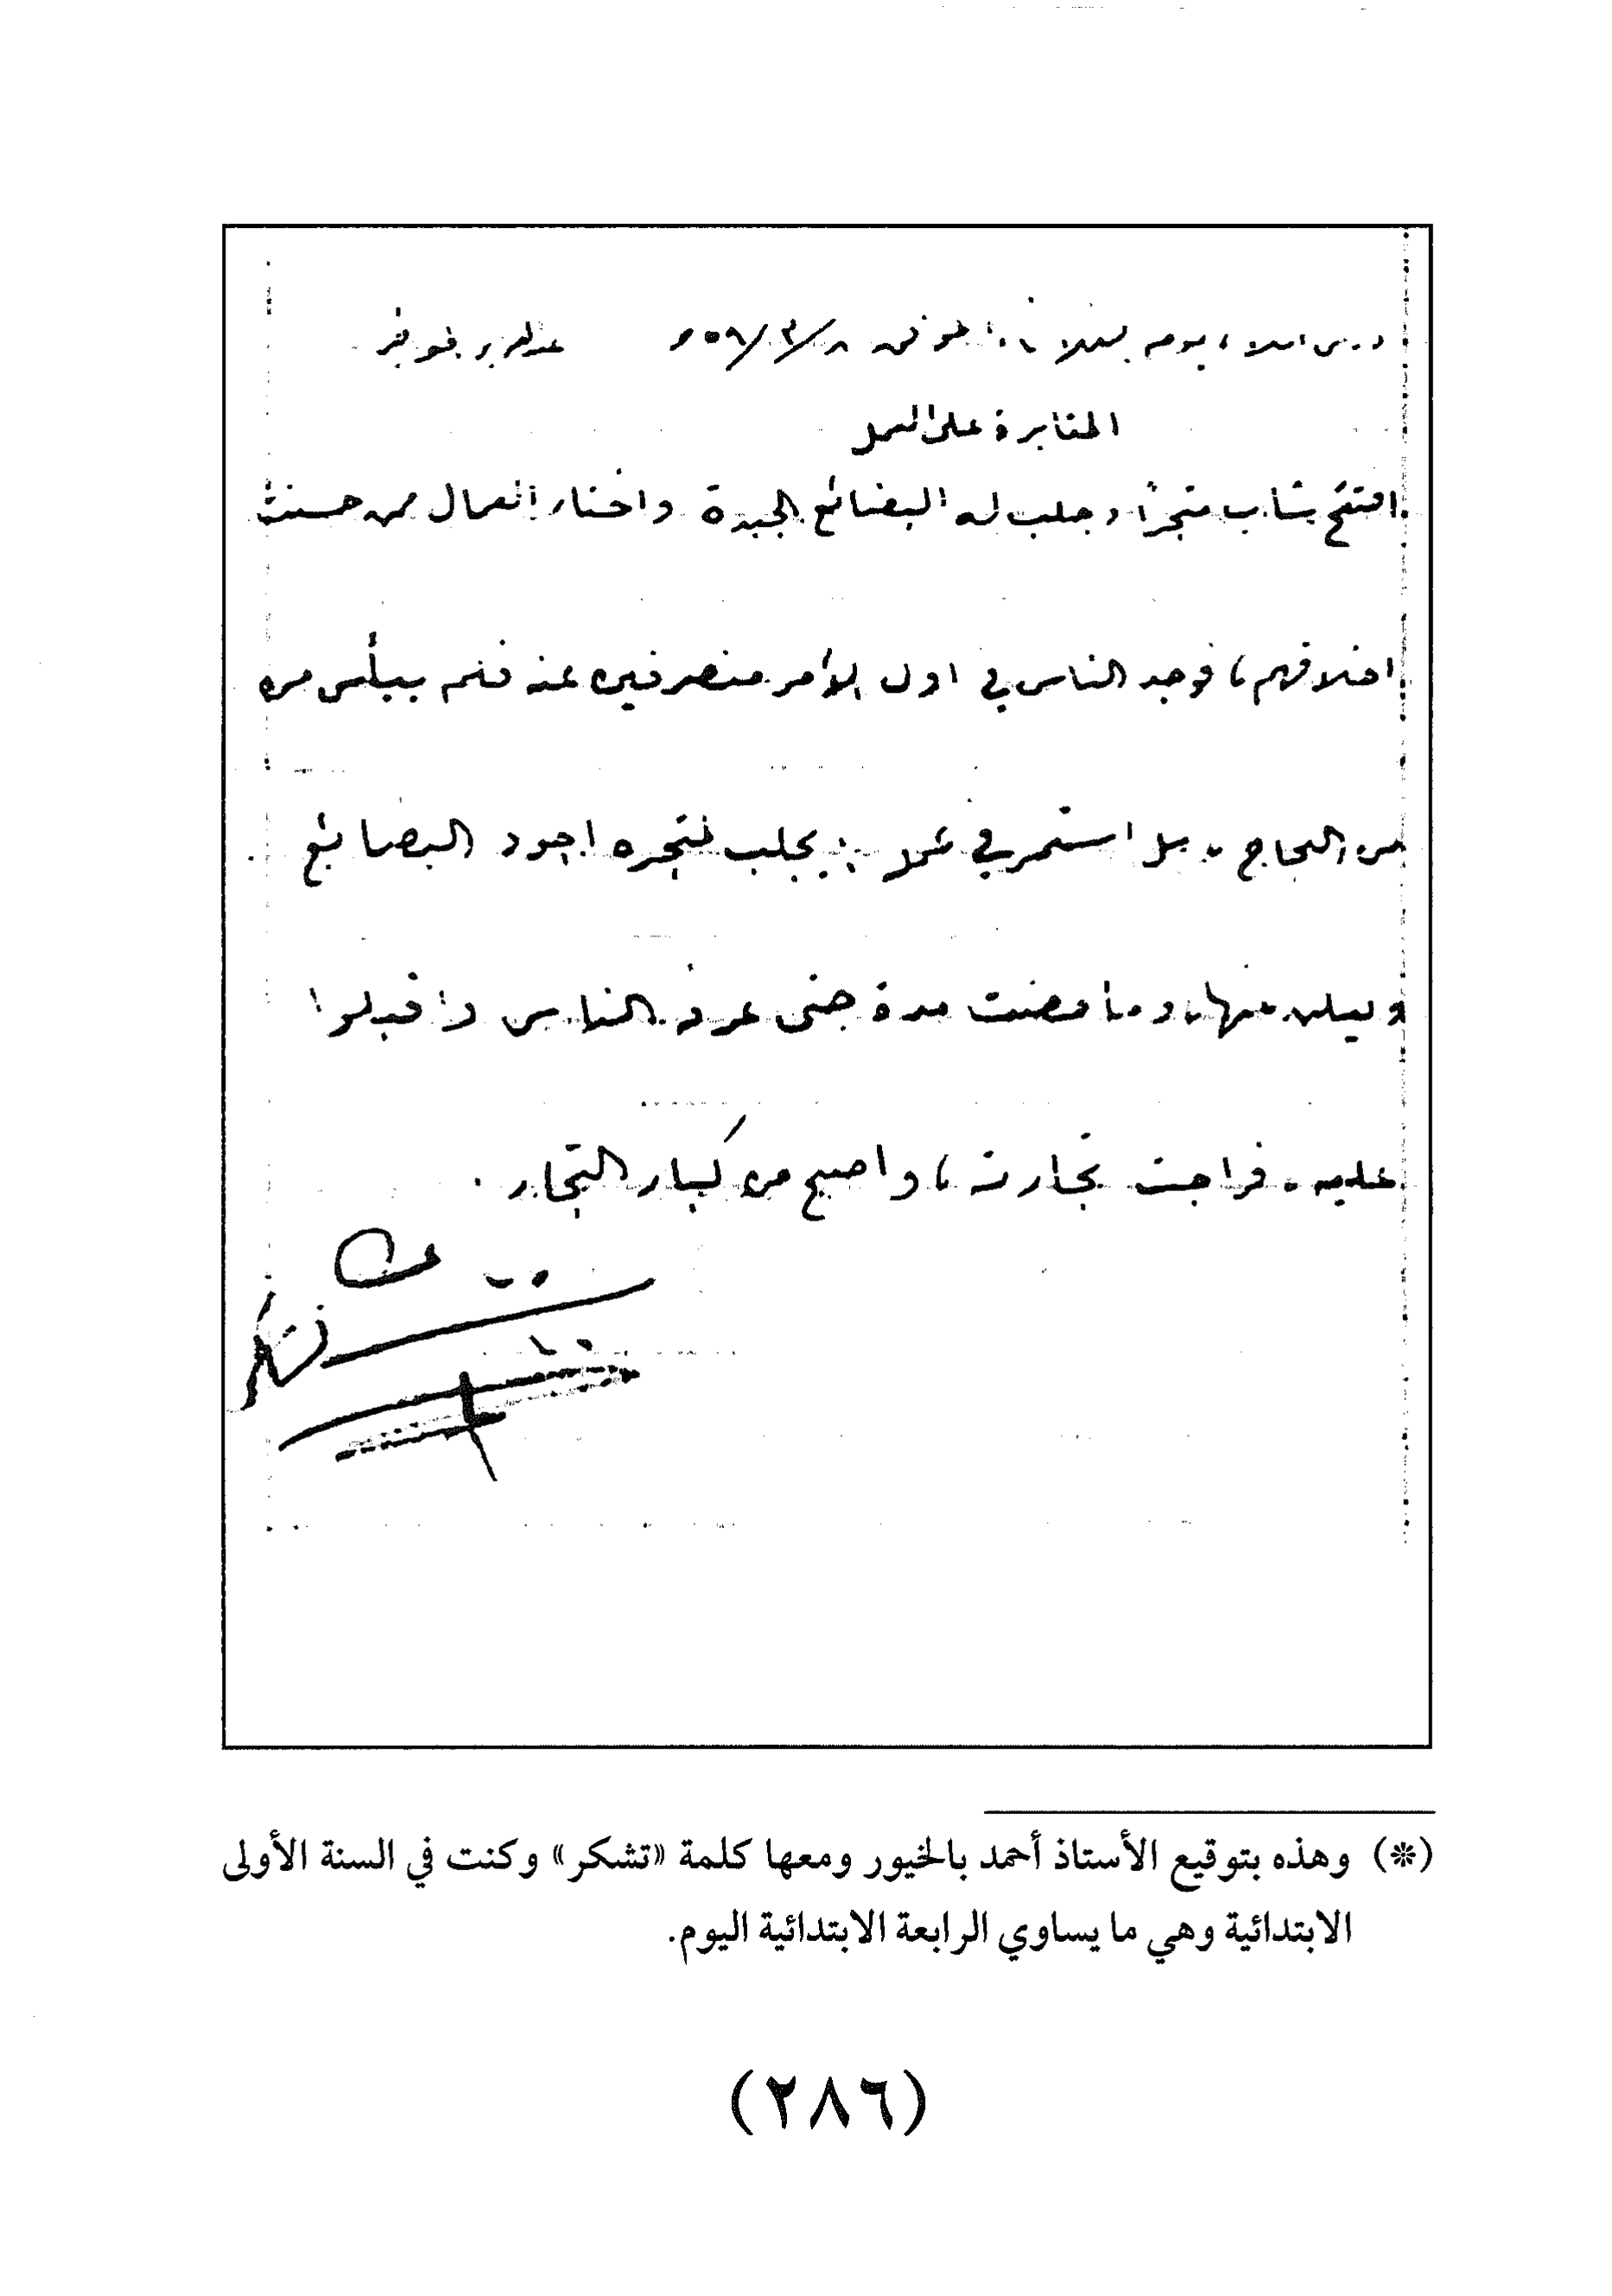 درس املاء يوم الثلاثاء الموافق ٨/٣/٥٨
المثابرة على العمل
افتتح شاب متجراً وجلب له البضائع الجيدة واختار العمال ممن حسنت
اخلاقهم، فوجد الناس في اول الأمر منصرفين عنه فلم ييأس من
من النجاح . بل استمر في عمله يجلب لمتجره اجود البضائع
ويعلن عنها، وما مضت مدة حتى عرفه الناس واقبلوا
عليه . فراجت تجارته، واصبح من كبار التجار .
تشكر
(*) وهذه بتوقيع الأستاذ أحمد بالخيور ومعها كلمة «تشكر» وكنت في السنة الأولى
الابتدائية وهي ما يساوي الرابعة الابتدائية اليوم.
(٢٨٦)